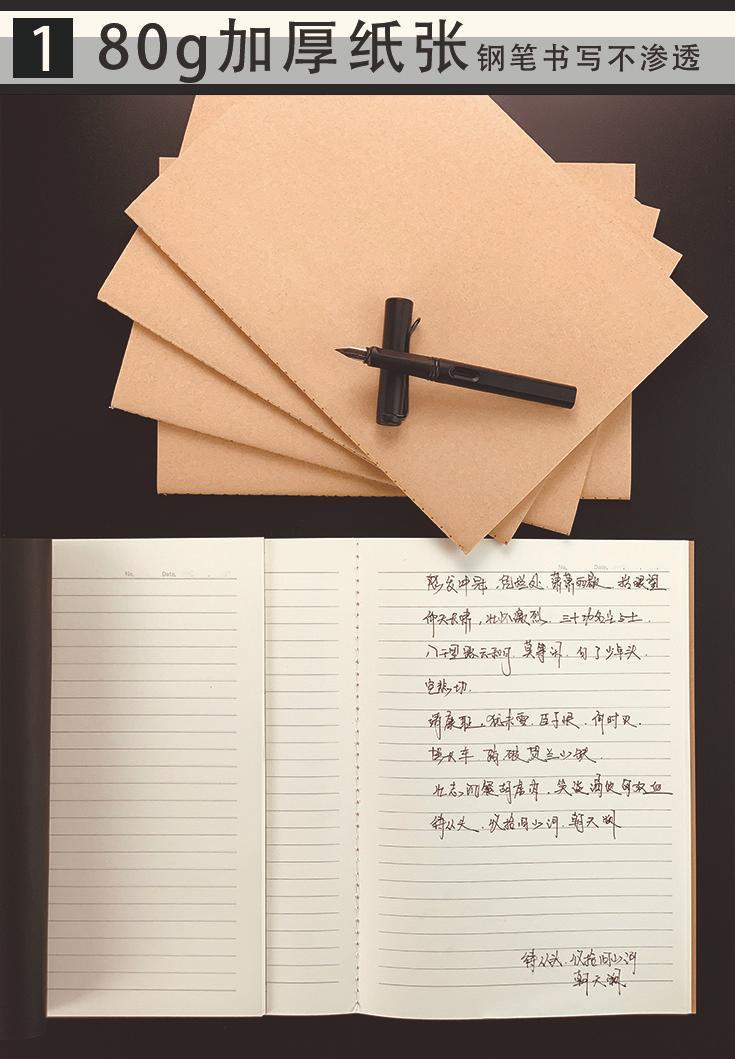 1 80g加厚纸张 钢笔书写不渗透
No. Date.
No. Date.
怒发冲冠，凭栏处，萧萧雨歇，抬眼望
仰天长啸，壮怀激烈，三十功名尘与土，
八千里路云和月，莫等闲，白了少年头，
空悲切.
靖康耻，犹未雪，臣子恨，何时灭.
驾长车，踏破贺兰山缺.
壮志饥餐胡虏肉，笑谈渴饮匈奴血
待从头，收拾旧山河，朝天阙
待从头，收拾旧山河
朝天阙.